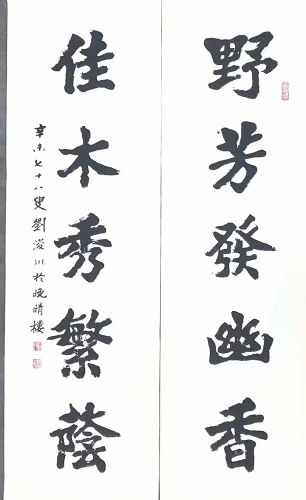 野芳發幽香
佳木秀繁蔭
辛未七十八叟劉浚川於晚晴樓